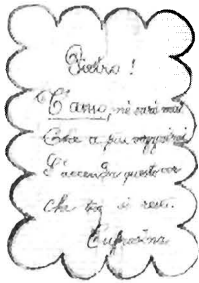 Pietro!
T'amo, nè sarà mai
Che a più
S'accenda questo cor
che tuo si rese.
Eufrosina